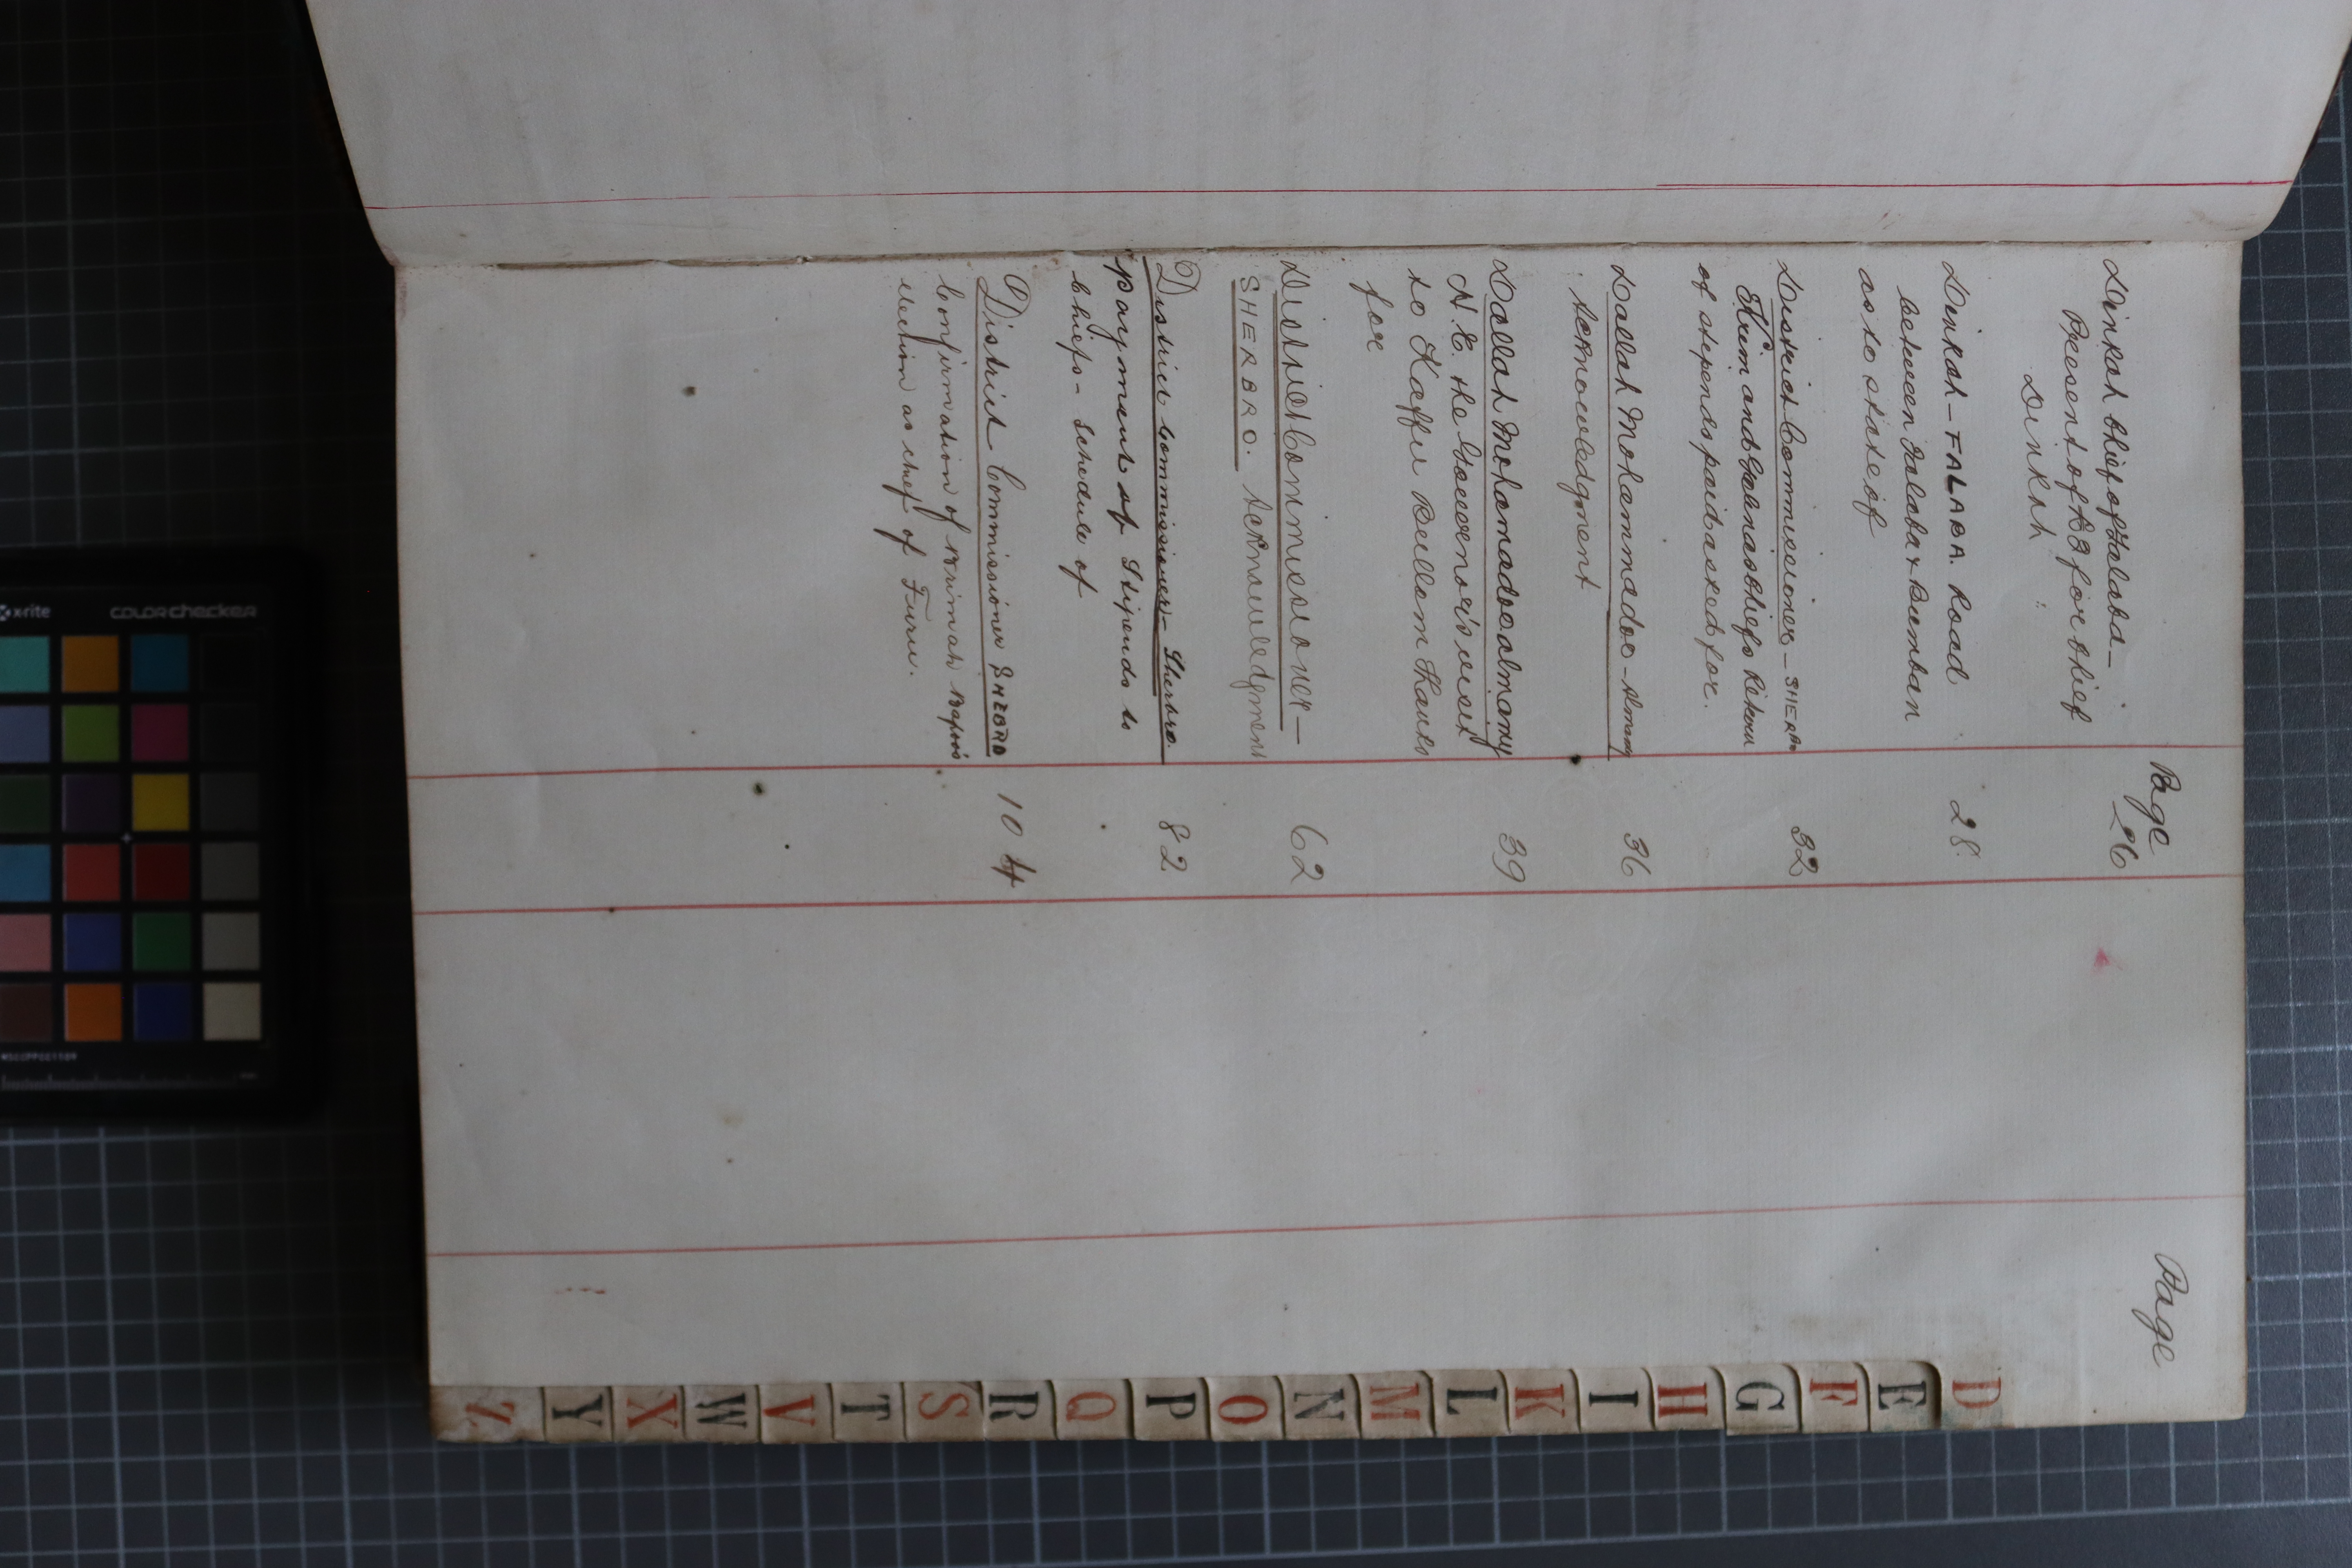 Page
Dinkah Chief of Falaba—
Present of £3 for Chief
Dinkah
26
Dinkah—FALABA. Road
between Falaba & Bumban
as to state of
28
District Commissioner—SHERBRO
Krim and Gallinas Chiefs
of stipends paid asked for.
32
Dallah Mohammadoe—Almamy
Acknowledgment
36
Dallah Mohammadoe almamy
H.E. the Governor's visit
to Kaffu Bullom thanks
for
39
District Commissioner—
SHERBRO. Acknowledgment
62
District Commissioner—Sherbro.
payment of Stipends to
Chiefs—Schedule of
82
District Commissioner SHERBRO
Confirmation of
election as chief of
104
Page
D
E
F
G
H
I
K
L
M
N
O
P
Q
R
S
T
V
W
X
Y
Z
x-rite
colorchecker